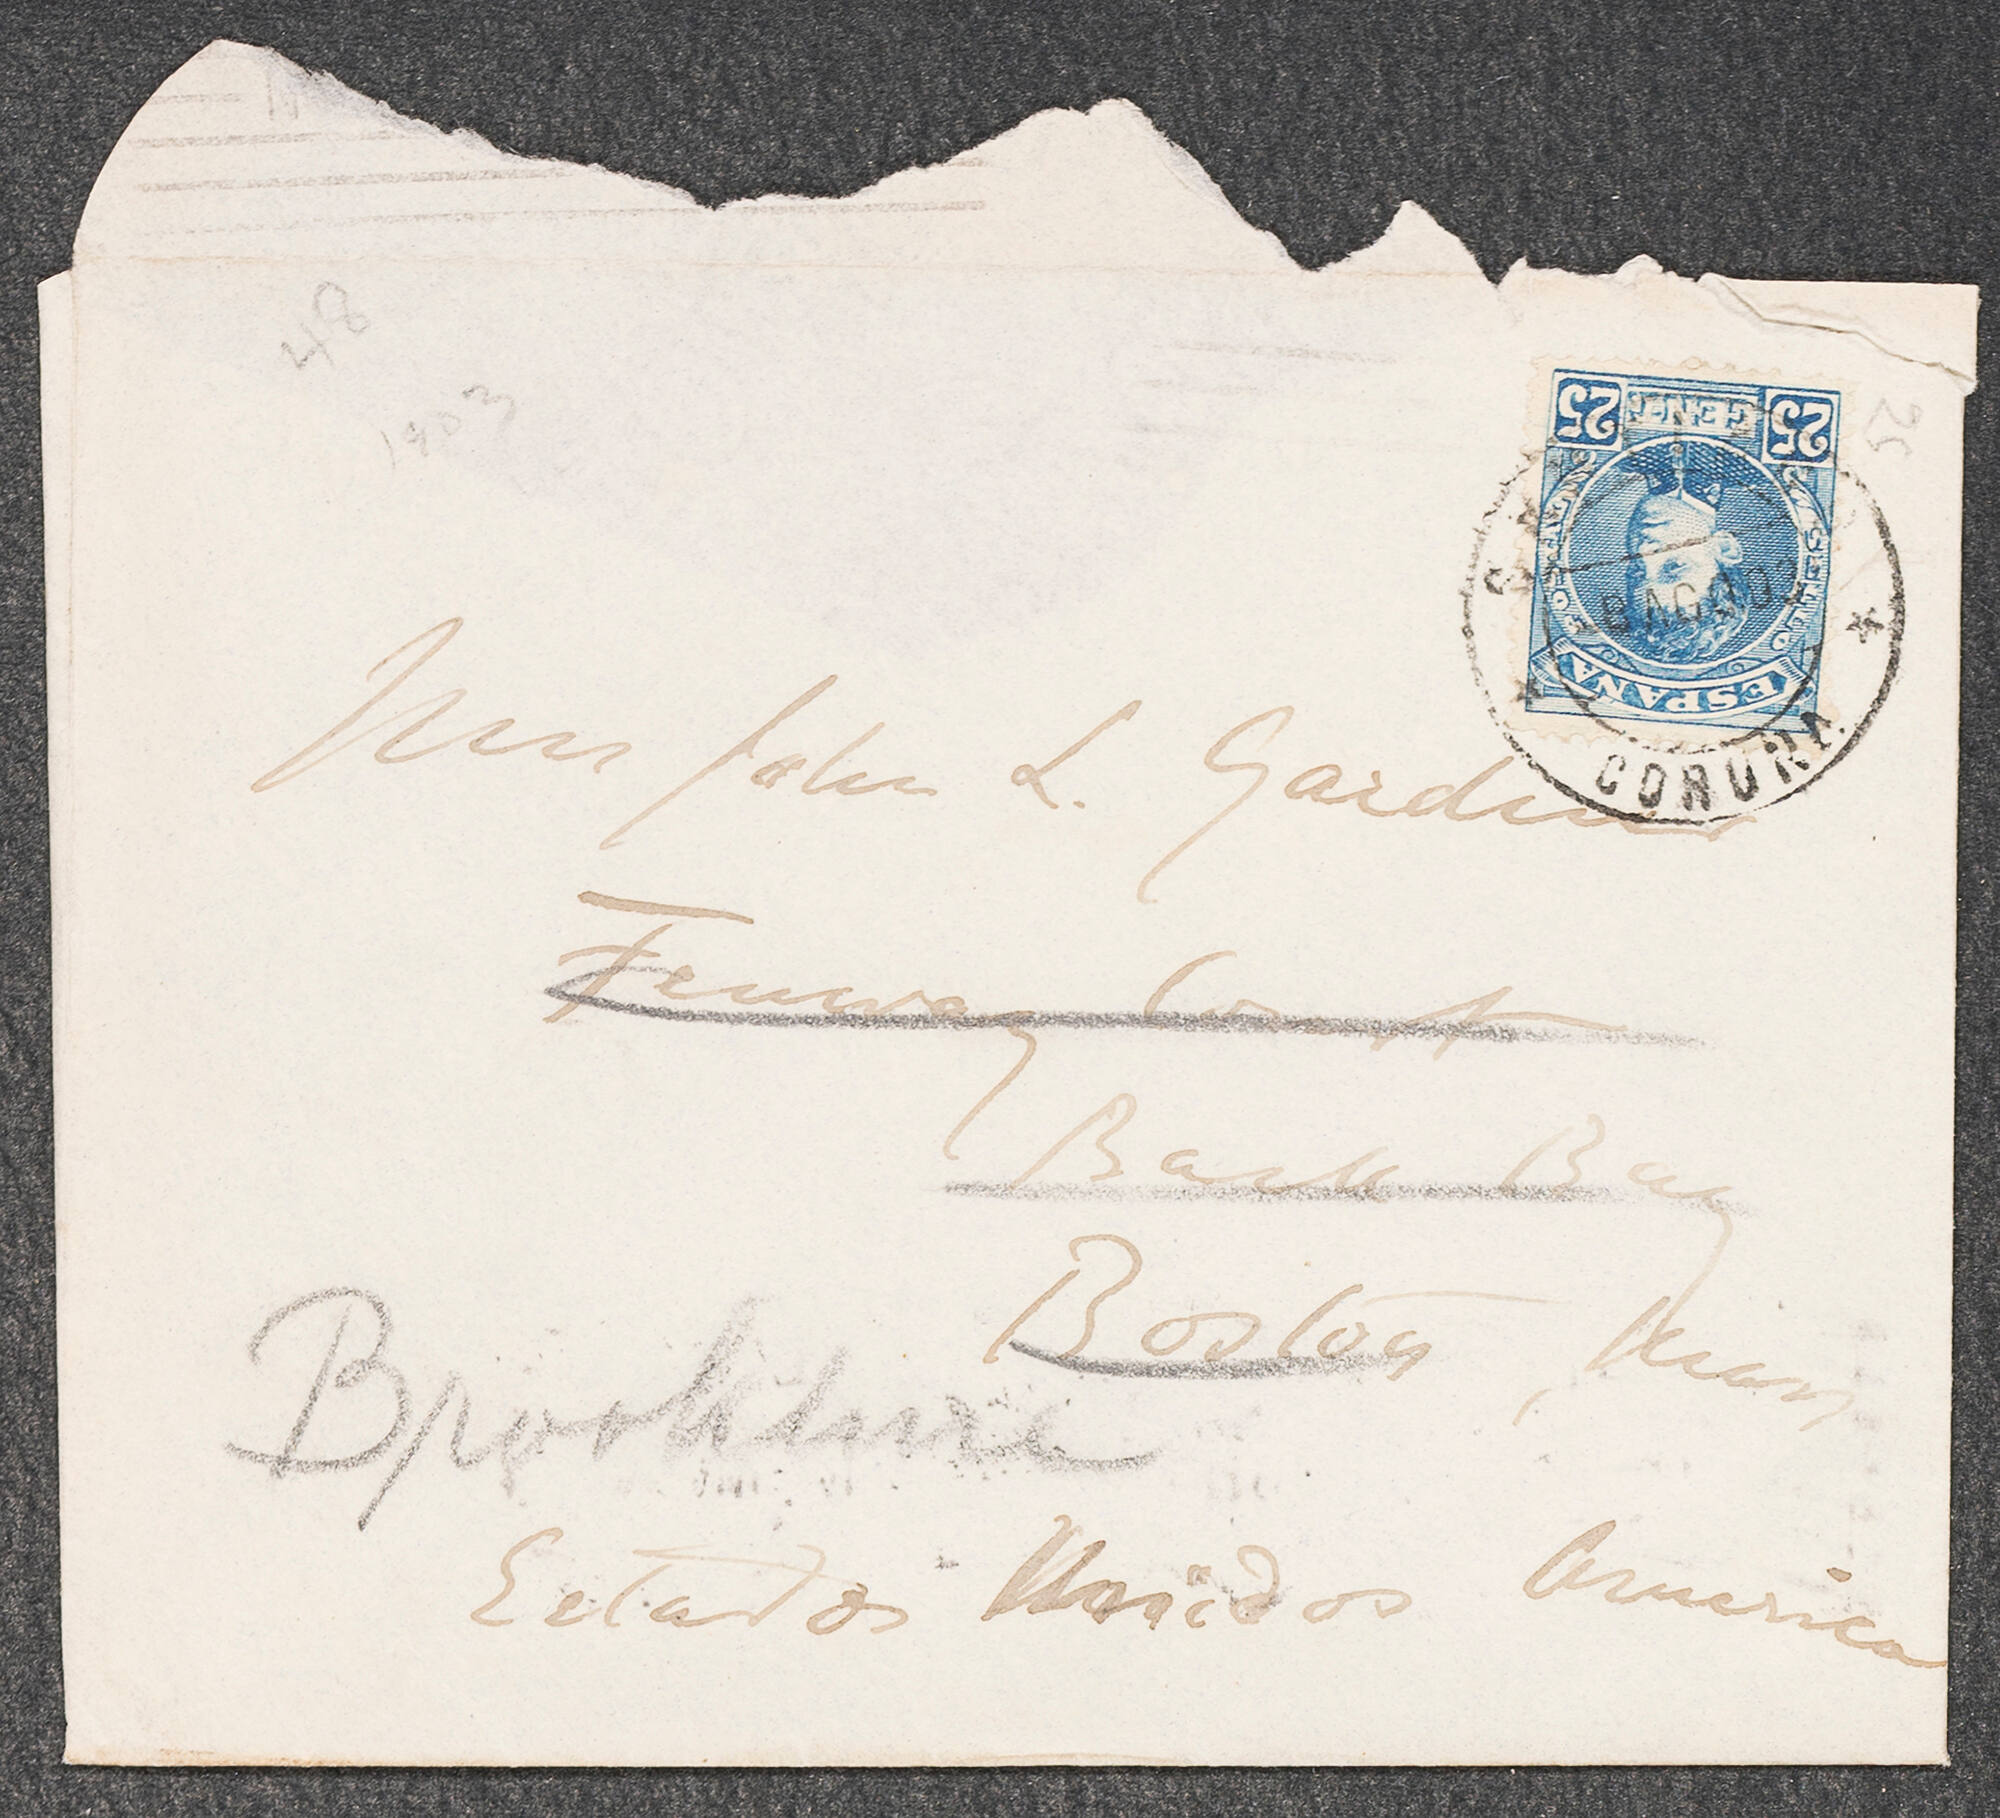 48
1903
25
25 CENT. 25
ESPAÑA
CORUÑA
Mrs John L. Gardner
Fenway Court
Back Bay
Boston, Mass
Brookline
Estados Unidos America